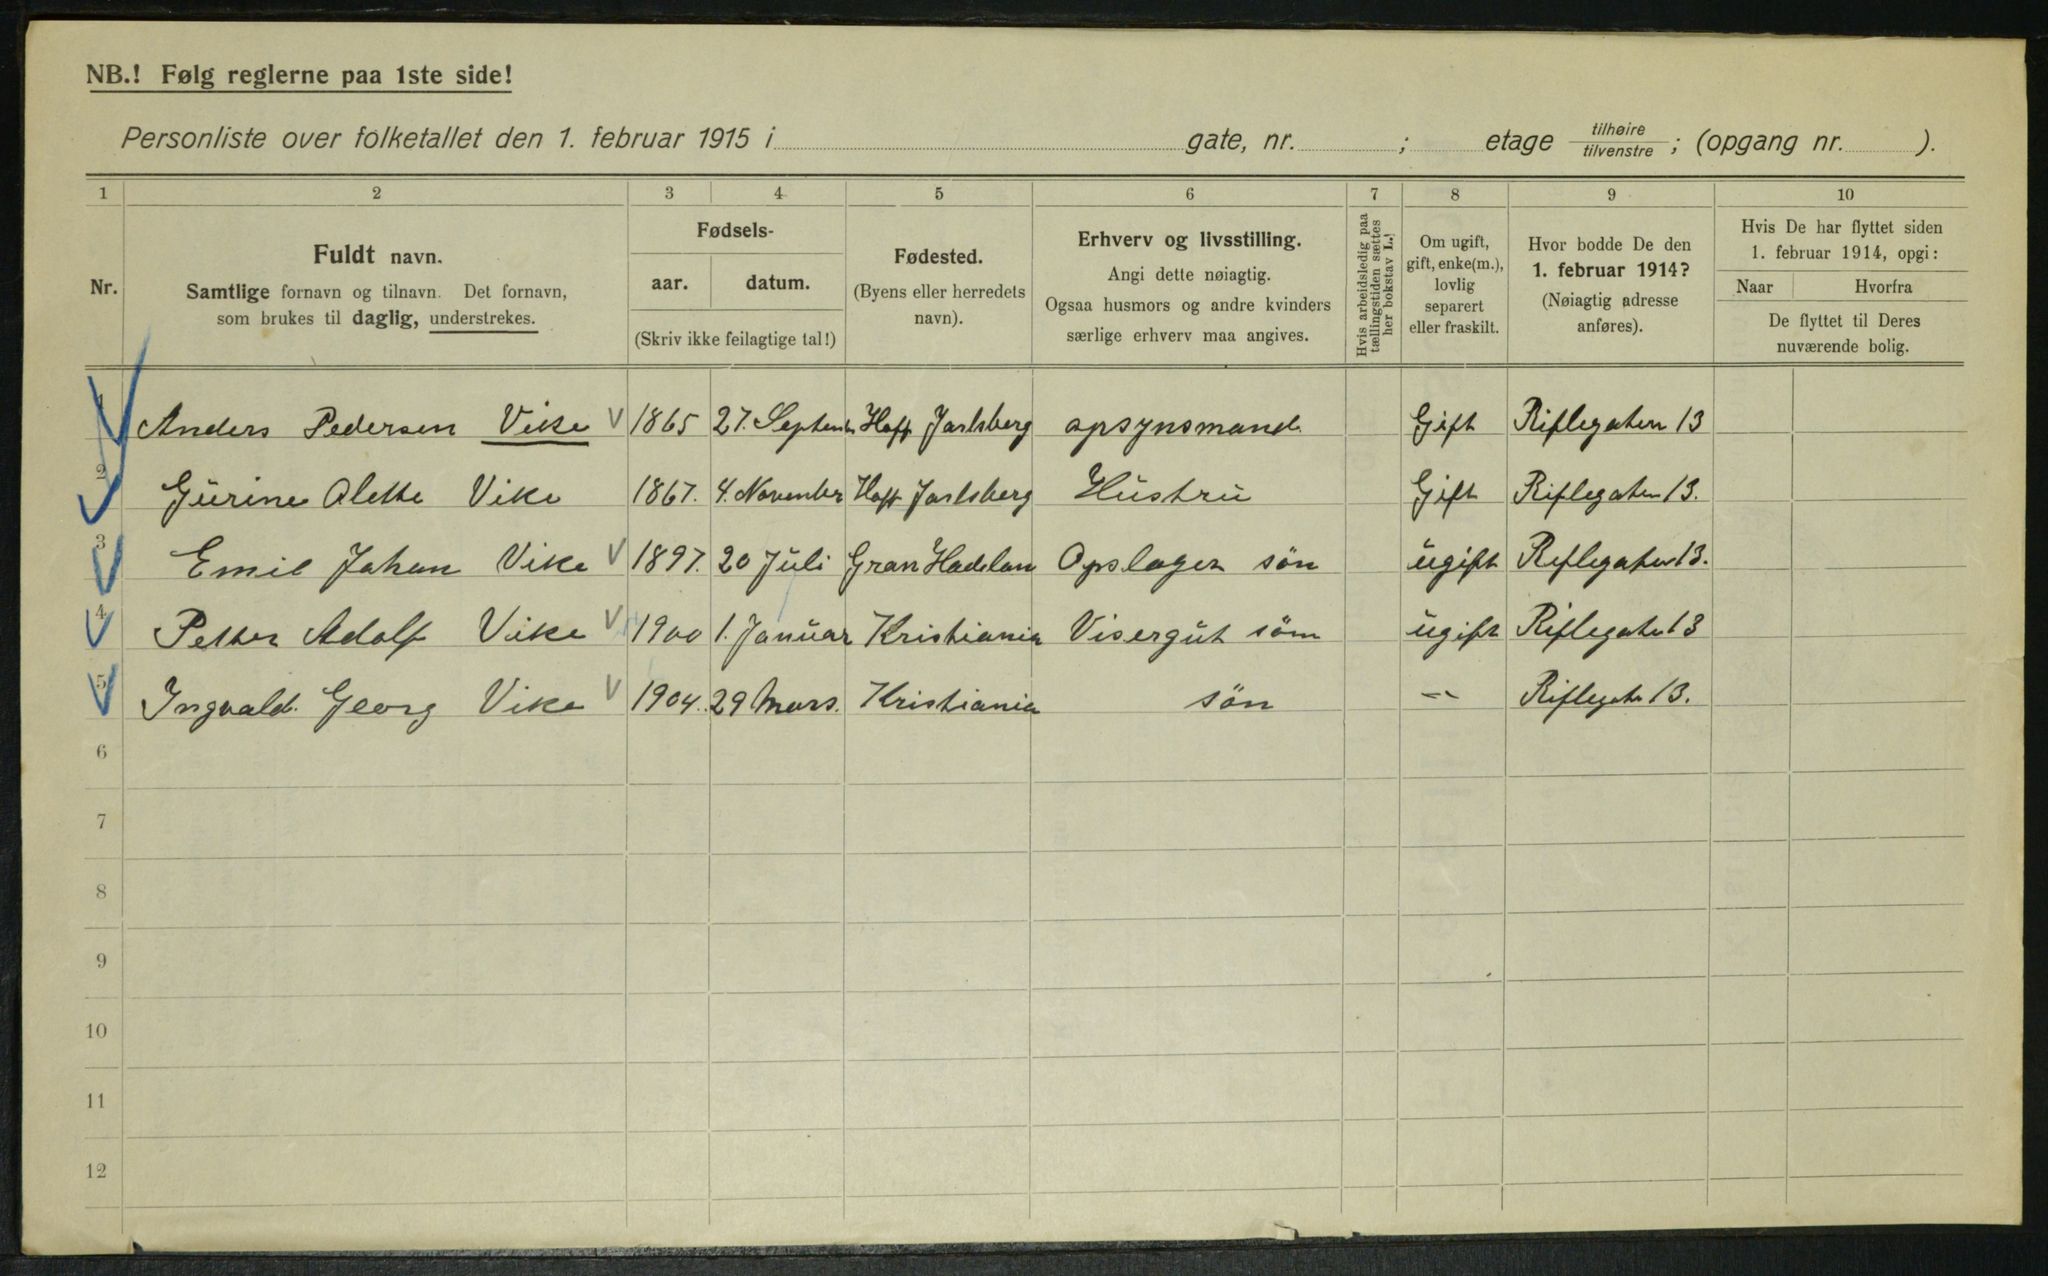 NB.! Følg reglerne paa 1ste side!
Personliste over folketallet den 1. februar 1915 i gate, nr. ; etage tilhøire tilvenstre ; (opgang nr. ).
1 2 3 4 5 6 7 8 9 10
Nr.
Fuldt navn.
Samtlige fornavn og tilnavn. Det fornavn,
som brukes til daglig, understrekes.
Fødsels-
aar. datum.
(Skriv ikke feilagtige tal!)
Fødested.
(Byens eller herredets
navn).
Erhverv og livsstilling.
Angi dette nøiagtig.
Ogsaa husmors og andre kvinders
særlige erhverv maa angives.
Hvis arbeidsledig paa
tællingstiden sættes
her bokstav L.!
Om ugift,
gift, enke(m.),
lovlig
separert
eller fraskilt.
Hvor bodde De den
1. februar 1914?
(Nøiagtig adresse
anføres).
Hvis De har flyttet siden
1. februar 1914, opgi:
Naar Hvorfra
De flyttet til Deres
nuværende bolig.
1 Anders Pedersen Vike V 1865 27. Septemb Hoff Jarlsberg opsynsmand. Gift Riflegaten 13
2 Gürine Alette Vike 1867. 4. November Hoff Jarlsberg Hüstrü Gift Riflegaten 13.
3 Emil Johan Vike V 1897. 20 Jüli Gran Hadelan Opslager sön ügift Riflegaten 13.
4 Petter Adolf Vike V 1900 1. Janüar Kristiania Visergüt sön ügift Riflegaten 13
5 Ingvald. Georg Vike V 1904. 29 Mars. Kristiania sön -"- Riflegate 13.
6
7
8
9
10
11
12